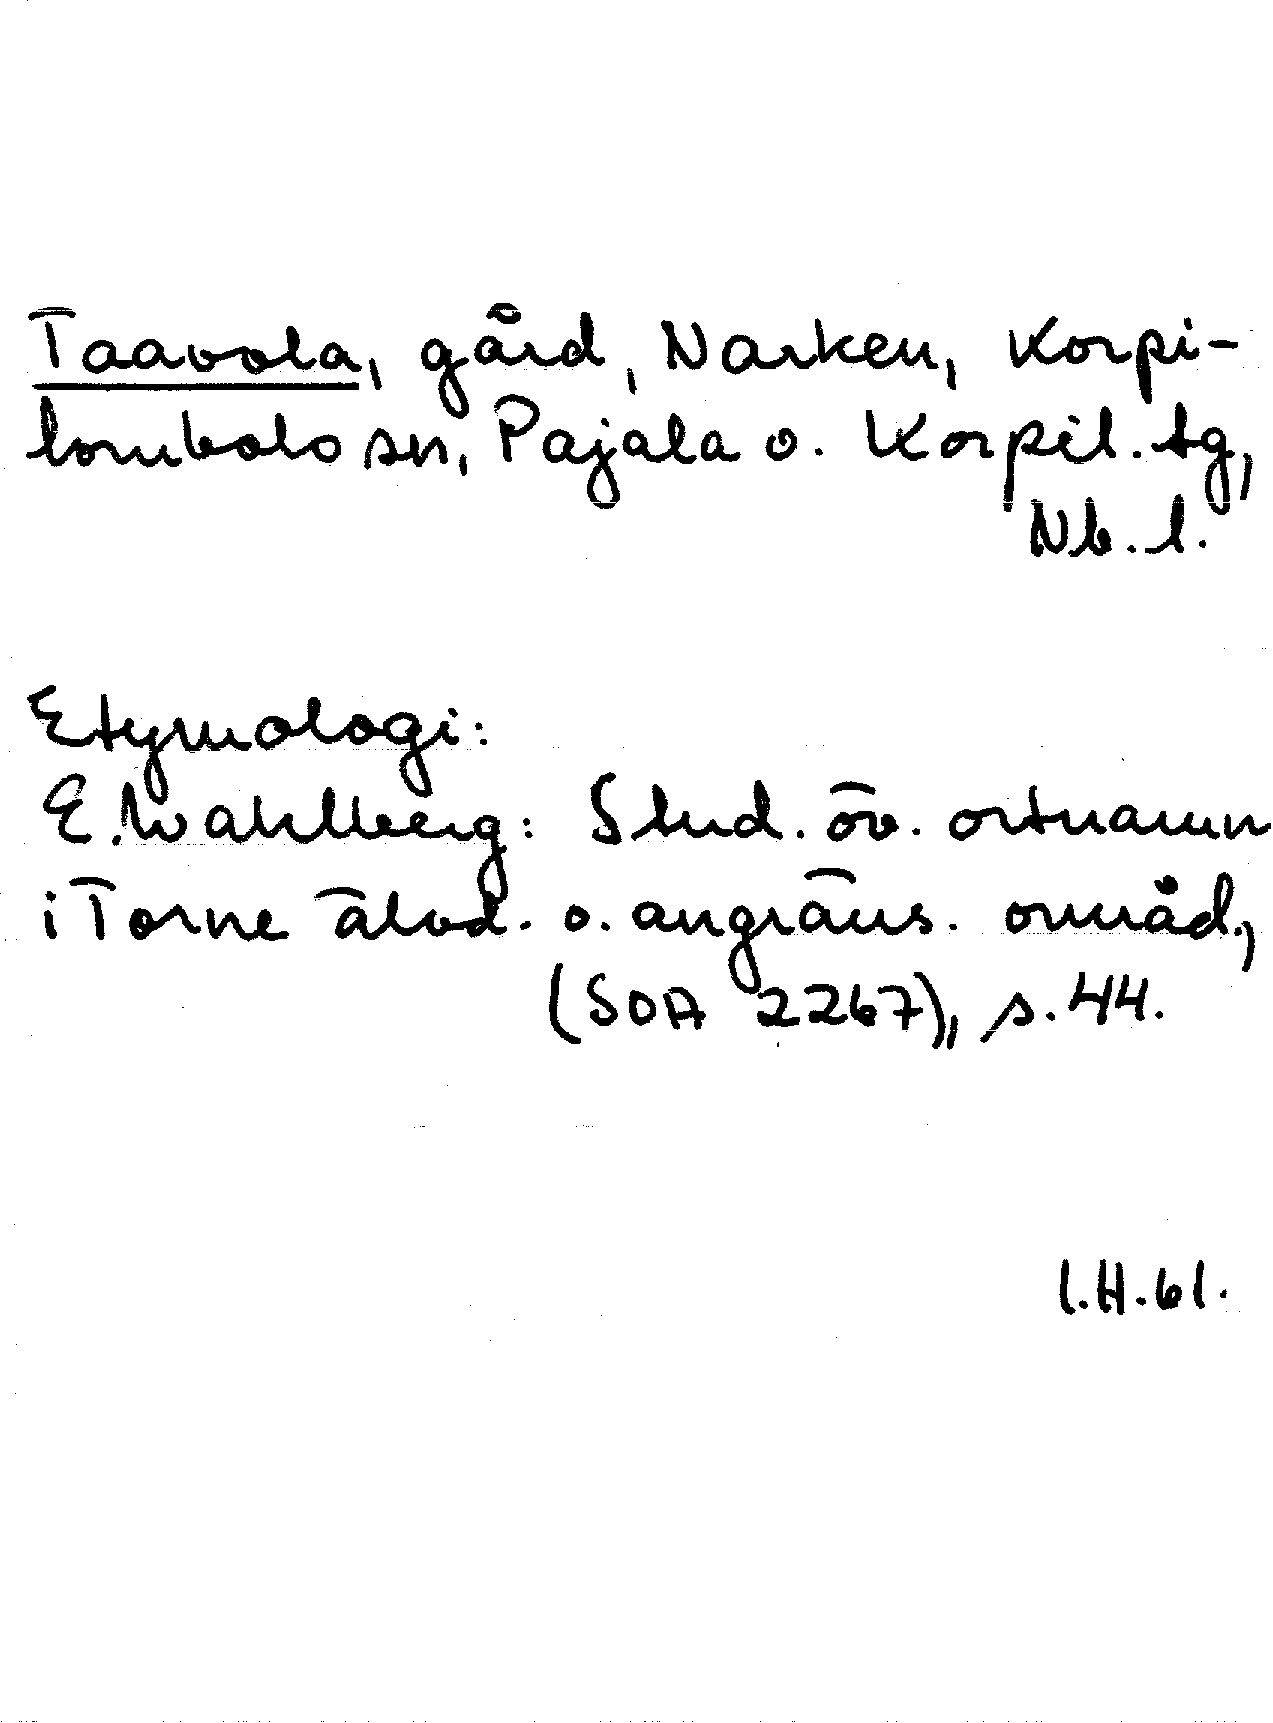 Taavola, gård, Narken, Korpi-
lombolo sn, Pajala o. Korpil. tg,
Nb. l.
Etymologi:
E. Wahlberg: Stud. öv. ortnamn
i Torne älvd. o. angräns. områd.,
(SOA 2267), s. 44.
I.H.61.